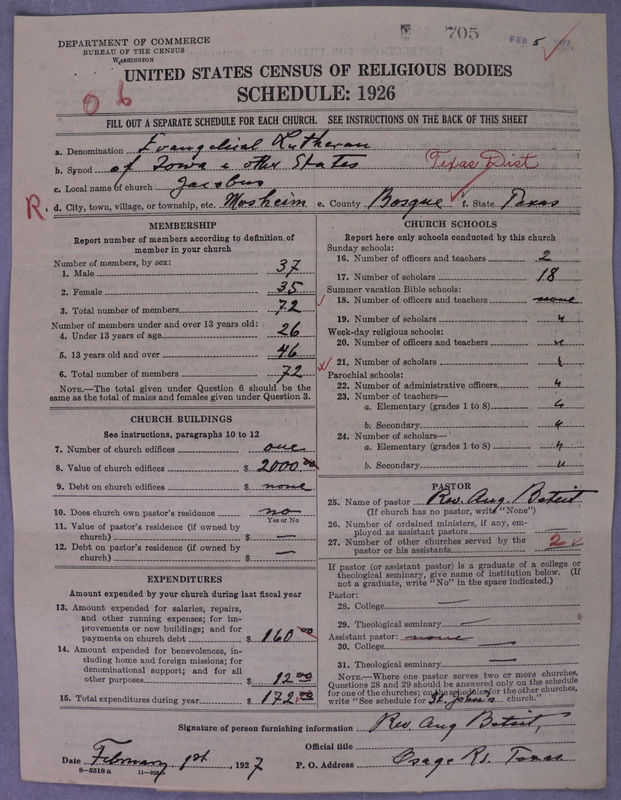 705
FEB 5 1927
DEPARTMENT OF COMMERCE
BUREAU OF THE CENSUS
WASHINGTON
UNITED STATES CENSUS OF RELIGIOUS BODIES
SCHEDULE: 1926
06
FILL OUT A SEPARATE SCHEDULE FOR EACH CHURCH. SEE INSTRUCTIONS ON THE BACK OF THIS SHEET
a. Denomination Evangelical Lutheran
b. Synod of Iowa & other States Texas Dist
c. Local name of church Jacobus
R. d. City, town, village, or township, etc. Mosheim e. County Bosque f. State Texas
MEMBERSHIP
Report number of members according to definition of
member in your church
Number of members, by sex:
1. Male 37
2. Female 35
3. Total number of members 72
Number of members under and over 13 years old:
4. Under 13 years of age 26
5. 13 years old and over 46
6. Total number of members 72
NOTE.—The total given under Question 6 should be the
same as the total of males and females given under Question 3.
CHURCH BUILDINGS
See instructions, paragraphs 10 to 12
7. Number of church edifices one
8. Value of church edifices $ 2000.00
9. Debt on church edifices $ none
10. Does church own pastor's residence no
Yes or No
11. Value of pastor's residence (if owned by
church) $ —
12. Debt on pastor's residence (if owned by
church) $ —
EXPENDITURES
Amount expended by your church during last fiscal year
13. Amount expended for salaries, repairs,
and other running expenses; for im-
provements or new buildings; and for
payments on church debt $ 160.00
14. Amount expended for benevolences, in-
cluding home and foreign missions; for
denominational support; and for all
other purposes $ 12.00
15. Total expenditures during year $ 172.00
CHURCH SCHOOLS
Report here only schools conducted by this church
Sunday schools:
16. Number of officers and teachers 2
17. Number of scholars 18
Summer vacation Bible schools:
18. Number of officers and teachers none
19. Number of scholars "
Week-day religious schools:
20. Number of officers and teachers "
21. Number of scholars "
Parochial schools:
22. Number of administrative officers "
23. Number of teachers—
a. Elementary (grades 1 to 8) "
b. Secondary "
24. Number of scholars—
a. Elementary (grades 1 to 8) "
b. Secondary "
PASTOR
25. Name of pastor Rev. Aug.
(If church has no pastor, write "None")
26. Number of ordained ministers, if any, em-
ployed as assistant pastors —
27. Number of other churches served by the
pastor or his assistants 2
If pastor (or assistant pastor) is a graduate of a college or
theological seminary, give name of institution below. (If
not a graduate, write "No" in the space indicated.)
Pastor:
28. College —
29. Theological seminary —
Assistant pastor: none
30. College —
31. Theological seminary —
NOTE.—Where one pastor serves two or more churches,
Questions 28 and 29 should be answered only on the schedule
for one of the churches; on the schedules for the other churches,
write "See schedule for St. John's church."
Signature of person furnishing information Rev. Aug
Official title
Date February 1st, 1927 P. O. Address Osage Rs. Texas
8—5518a